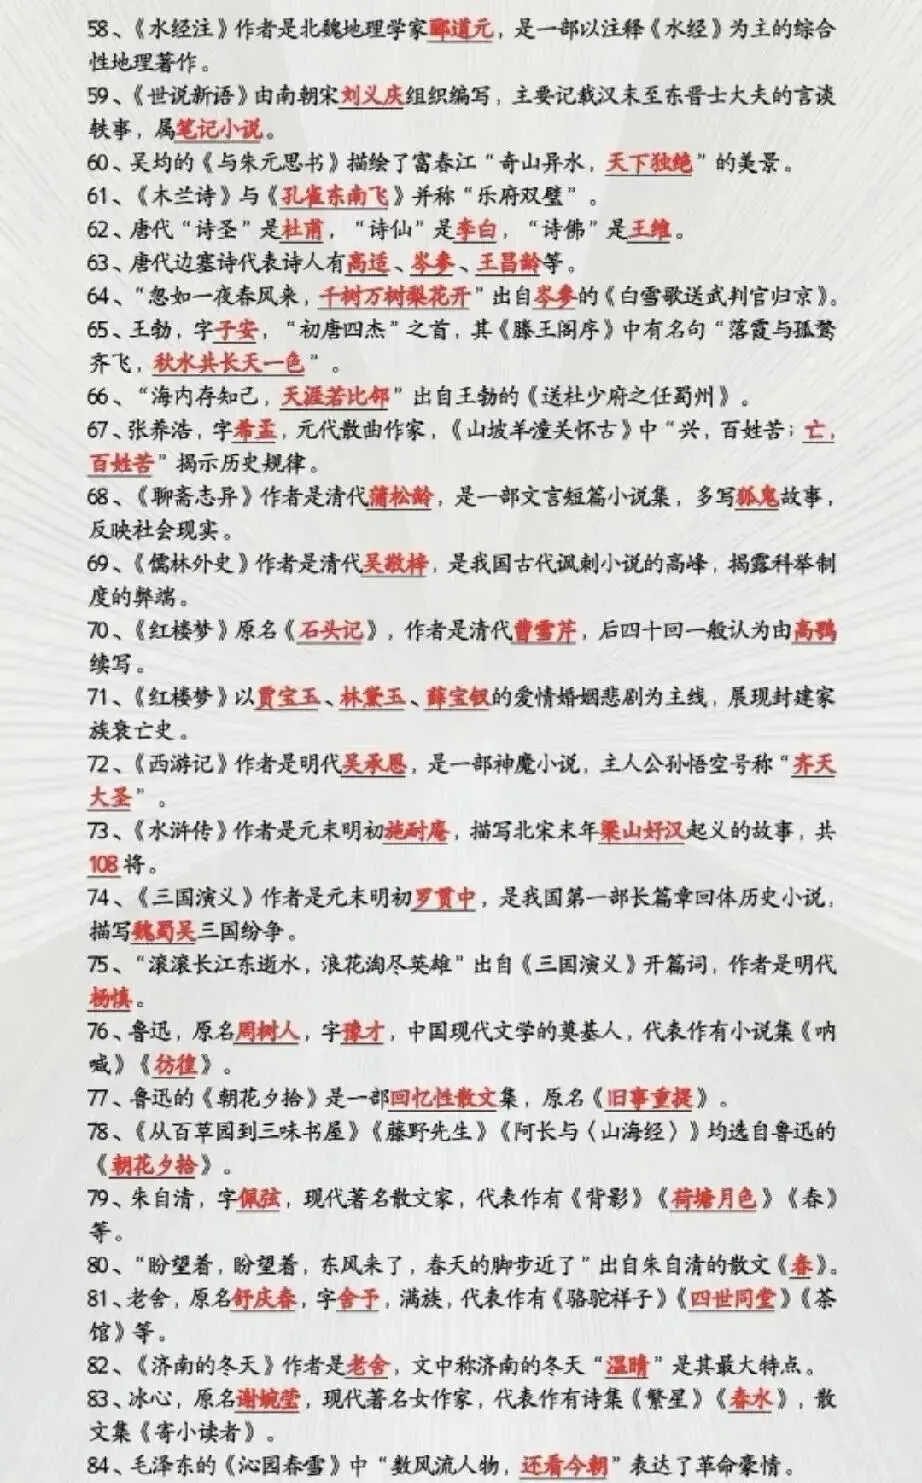 58、《水经注》作者是北魏地理学家郦道元，是一部以注释《水经》为主的综合
性地理著作。
59、《世说新语》由南朝宋刘义庆组织编写，主要记载汉末至东晋士大夫的言谈
轶事，属笔记小说。
60、吴均的《与朱元思书》描绘了富春江“奇山异水，天下独绝”的美景。
61、《木兰诗》与《孔雀东南飞》并称“乐府双璧”。
62、唐代“诗圣”是杜甫，“诗仙”是李白，“诗佛”是王维。
63、唐代边塞诗代表诗人有高适、岑参、王昌龄等。
64、“忽如一夜春风来，千树万树梨花开”出自岑参的《白雪歌送武判官归京》。
65、王勃，字子安，“初唐四杰”之首，其《滕王阁序》中有名句“落霞与孤鹜
齐飞，秋水共长天一色”。
66、“海内存知己，天涯若比邻”出自王勃的《送杜少府之任蜀州》。
67、张养浩，字希孟，元代散曲作家，《山坡羊潼关怀古》中“兴，百姓苦；亡，
百姓苦”揭示历史规律。
68、《聊斋志异》作者是清代蒲松龄，是一部文言短篇小说集，多写狐鬼故事，
反映社会现实。
69、《儒林外史》作者是清代吴敬梓，是我国古代讽刺小说的高峰，揭露科举制
度的弊端。
70、《红楼梦》原名《石头记》，作者是清代曹雪芹，后四十回一般认为由高鹗
续写。
71、《红楼梦》以贾宝玉、林黛玉、薛宝钗的爱情婚姻悲剧为主线，展现封建家
族衰亡史。
72、《西游记》作者是明代吴承恩，是一部神魔小说，主人公孙悟空号称“齐天
大圣”。
73、《水浒传》作者是元末明初施耐庵，描写北宋末年梁山好汉起义的故事，共
108将。
74、《三国演义》作者是元末明初罗贯中，是我国第一部长篇章回体历史小说，
描写魏蜀吴三国纷争。
75、“滚滚长江东逝水，浪花淘尽英雄”出自《三国演义》开篇词，作者是明代
杨慎。
76、鲁迅，原名周树人，字豫才，中国现代文学的奠基人，代表作有小说集《呐
喊》《彷徨》。
77、鲁迅的《朝花夕拾》是一部回忆性散文集，原名《旧事重提》。
78、《从百草园到三味书屋》《藤野先生》《阿长与〈山海经〉》均选自鲁迅的
《朝花夕拾》。
79、朱自清，字佩弦，现代著名散文家，代表作有《背影》《荷塘月色》《春》
等。
80、“盼望着，盼望着，东风来了，春天的脚步近了”出自朱自清的散文《春》。
81、老舍，原名舒庆春，字舍予，满族，代表作有《骆驼祥子》《四世同堂》《茶
馆》等。
82、《济南的冬天》作者是老舍，文中称济南的冬天“温晴”是其最大特点。
83、冰心，原名谢婉莹，现代著名女作家，代表作有诗集《繁星》《春水》，散
文集《寄小读者》。
84、毛泽东的《沁园春雪》中“数风流人物，还看今朝”表达了革命豪情。